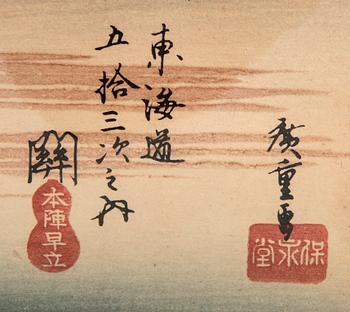 東海道
五拾三次之内
関
本陣早立
廣重画
保永堂